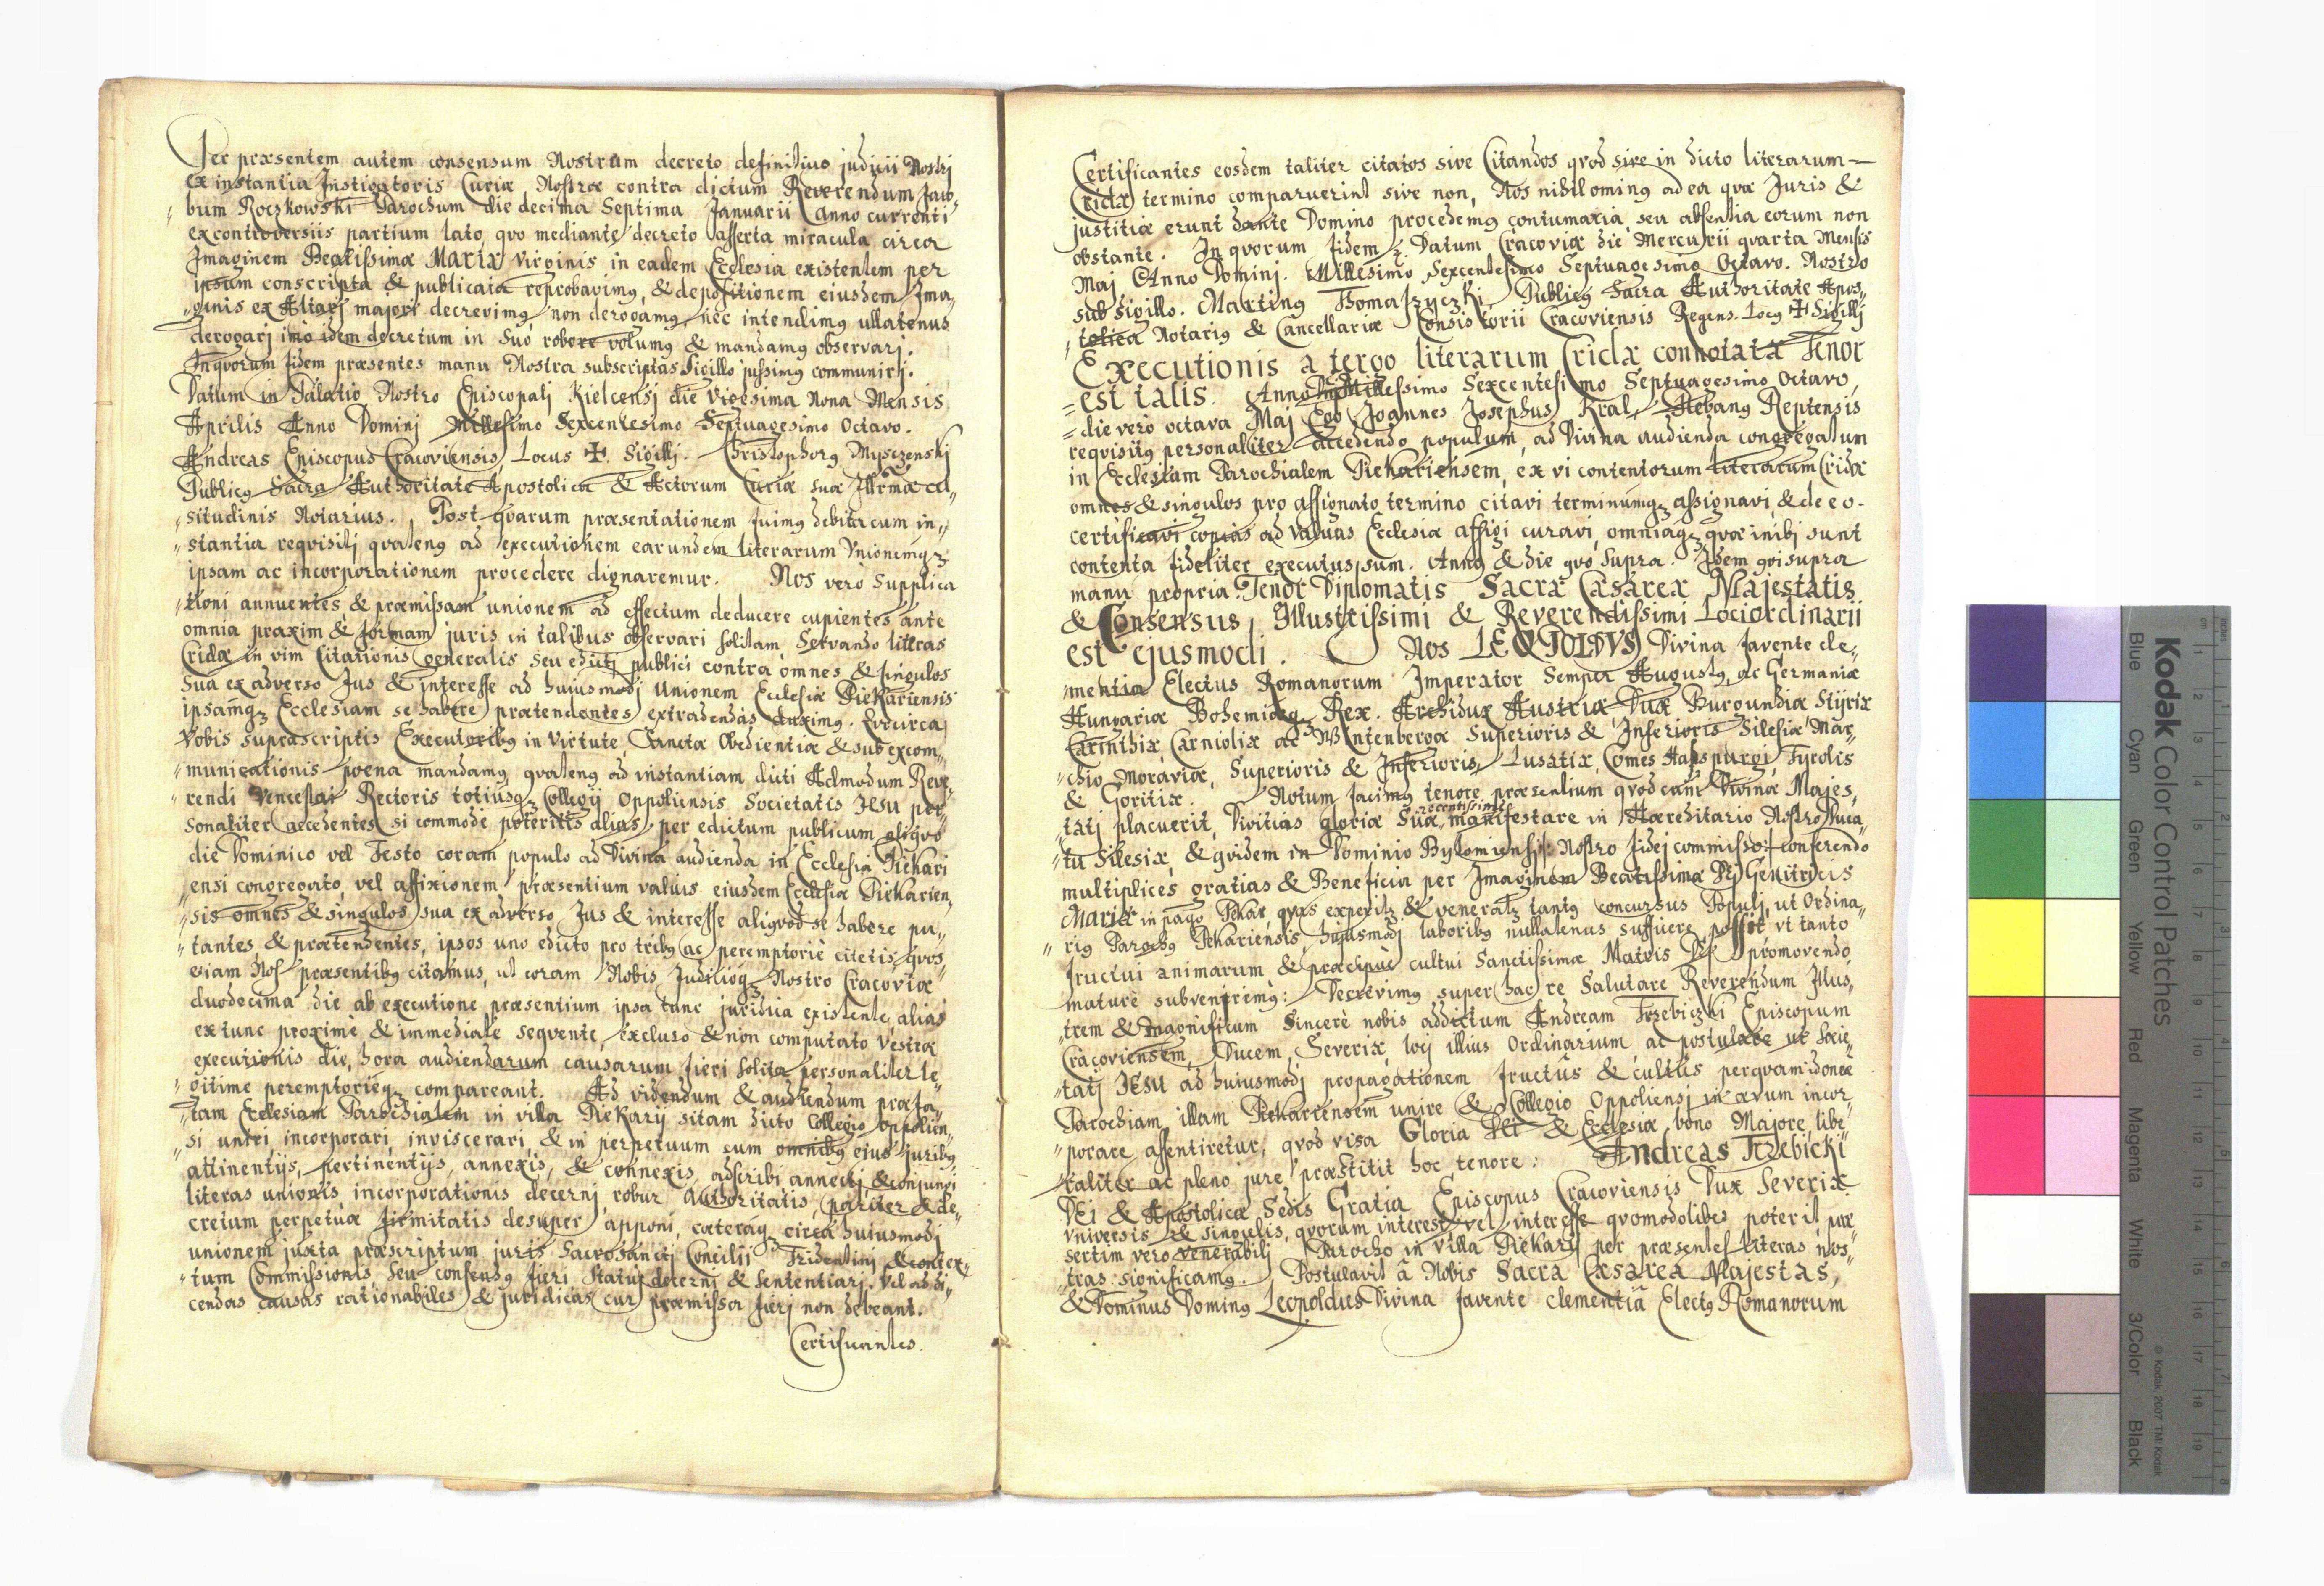 Per præsentem autem consensum Nostrum decreto definitivo judicii Nostrj
ex instantia Instigatoris Curiæ Nostræ contra dictum Reverendum Jaco„
„bum Roczkowski Parochum die decima Septima Januarii Anno currenti
ex controversiis partium lato, qvo mediante decreto asserta miracula circa
Imaginem Beatissimæ Mariæ Virginis in eadem Ecclesia existentem per
ipsum conscripta & publicata reprobavimq, & depositionem eiusdem Ima„
„ginis ex Altarj majori decrevimq non derogamq, nec intendimq ullatenus
derogarj imo idem decretum in suo robore volumq & mandamq observarj.
In qvorum fidem præsentes manu Nostra subscriptas Sigillo jussimq communirj.
Datum in Palatio Nostro Episcopalj Kielcensj die Vigesima Nona Mensis
Aprilis Anno Dominj Millesimo Sexcentesimo Septuagesimo Octavo.
Andreas Episcopus Cracoviensis, Locus ✠ Sigillj. Christophorq Mysczenskj
Publicq Sacra Authoritate Apostolica & Actorum Curiæ suæ Illrmæ cel„
„situdinis Notarius. Post qvarum præsentationem fuimq debita cum in„
„stantia reqvisitj qvatenq ad executionem earundem literarum Vnionemqz
ipsam ac incorporationem procedere dignaremur. Nos vero supplica
„tioni annuentes & præmissam unionem ad effectum deducere cupientes ante
omnia praxim & formam juris in talibus observari solitam Servando litteras
Cridæ in vim Citationis generalis seu edicti publici contra omnes & singulos
sua ex adverso Jus & interesse ad huiusmodj Unionem Ecclesiæ Piekariensis
ipsamqz Ecclesiam se habere prætendentes extradendas duximq. Qvocirca
Vobis suprascriptis Executoribq in Virtute Sanctæ Obedientiæ & sub excom„
„municationis poena mandamq qvatenq ad instantiam dicti Admodum Reve„
„rendi Venceslai Rectoris totiusqz Collegij Oppoliensis Societatis JESU per„
sonaliter accedentes si commode poteritis alias per edictum publicum aliqvo
die Dominico vel Festo coram populo ad Divina audienda in Ecclesia Piekari
„ensi congregato, vel affixionem præsentium valvis eiusdem Ecclesiæ Piekarien„
„sis omnes & singulos sua ex adverso Jus & interesse aliqvod se habere pu„
„tantes & prætendentes, ipsos uno edicto pro tribq ac peremptorie citetis, qvos
etiam Nos præsentibq citamus, ut coram Nobis Judicioqz Nostro Cracoviæ
duodecima die ab executione præsentium ipsa tunc juridica existente, alias
ex tunc proxime & immediate seqvente, excluso & non computato Vestræ
executionis die, hora audiendarum causarum fieri solita personaliter le„
„gitime peremptorieqz compareant. Ad videndum & audiendum præfa„
„tam Ecclesiam Parochialem in villa Piekarij sitam dicto Collegio Oppolien„
„si uniri, incorporari, inviscerari, & in perpetuum cum omnibq ejus juribq
attinentijs, pertinentijs, annexis, & connexis adscribi annectj & conjungi
literas unionis, incorporationis decernj robur Authoritatis, pariter & de„
cretum perpetuæ firmitatis desuper apponi, cæteraqz circa huiusmodj
unionem juxta præscriptum juris Sacrosanctj Concilii Tridentinj & contex„
„tum Commissionis seu consensq fieri statui decernj & sententiarj. Vel ad di„
cendas causas rationabiles & juridicas cur præmissa fierj non debeant.
Certificantes.
Certificantes eosdem taliter citatos sive Citandos qvod sive in dicto literarum
Cridæ termino comparuerint sive non, Nos nihilominq ad ea qvæ Juris &
justitiæ erunt dante Domino procedemq contumacia, seu absentia eorum non
obstante. In qvorum fidem &. Datum Cracoviæ die Mercurii qvarta Mensis
Maj Anno Dominj. Millesimo Sexcentesimo Septuagesimo Octavo. Nostro
sub sigillo. Martinq Thomaszyczki, Publicq Sacra Authoritate Apos„
„tolica Notariq & Cancellariæ Consistorii Cracoviensis Regens. Locq ✠ Sigillj
Executionis a tergo literarum Cridæ connotatæ Tenor
est talis. Anno Dnj Millessimo Sexcentesimo Septuagesimo Octavo,
die vero octava Maj Ego Joannes Josephus Kral, Plebanq Reptensis
reqvisitq personaliter accedendo populum ad Divina audienda congregatum
in Ecclesiam Parochialem Piekariensem, ex vi contentorum literarum Cridæ
omnes & singulos pro assignato termino citavi terminumqz assignavi, & de eo
certificavi copias ad valvas Ecclesiæ affigi curavi, omniaqz qvæ inibj sunt
contenta fideliter executus sum. Anno & die qvo supra. Idem qvi supra
manu propria. Tenor Diplomatis Sacræ Cæsareæ Majestatis
& Consensus, Illustrissimi & Reverendissimi Lociordinarii
est ejusmodi. Nos LEOPOLDVS Divina favente cle„
„mentia Electus Romanorum Imperator Semper Augustq, ac Germaniæ
Hungariæ Bohemiæqz Rex. Archidux Austriæ Dux Burgundiæ Styriæ
Carinthiæ Carnioliæ ac Wirtenbergæ Superioris & Inferioris Silesiæ Mar„
„chio Moraviæ, Superioris & Inferioris Lusatiæ, Comes Hapspurgi, Tyrolis
& Goritiæ. Notum facimq tenore præsentium qvod cum Divinæ Majes„
„tatj placuerit, Divitias gloriæ Suæ recentissime manifestare in Hæreditario Nostro Duca„
„tu Silesiæ, & qvidem in Dominio Bytomiensi: Nostro fidej commisso: conferendo
multiplices gratias & Beneficia per Imaginem Beatissimæ DEj Genitricis
Mariæ in pago Pekar, qvas expetit & veneratq tantq concursus Populj, ut Ordina„
„riq Parochq Pekariensis, hujusmodj laboribq nullatenus sufficere possit vt tanto
fructui animarum & præcipue cultui Sanctissimæ Matris DEI promovendo
mature subveniremq: Decrevimq super hac re Salutare Reverendum Illus„
„trem & magnificum Sincere nobis addictum Andream Trzebiczki Episcopum
Cracoviensem, Ducem Severiæ, locj illius Ordinarium ac postulare ut Socie„
„tatj JESU ad huiusmodj propagationem fructus & cultus perqvam idonee
Parochiam illam Piekariensem unire & Collegio Oppoliensj in ævum incor„
„porare assentiretur, qvod visa Gloria DEI & Ecclesiæ bono Majore, libe„
raliter ac pleno jure præstitit hoc tenore: Andreas Trzebicki
DEi & Apostolicæ Sedis Gratia Episcopus Cracoviensis Dux Severiæ
Vniversis & singulis, qvorum interest vel interesse qvomodolibet poterit, præ
sertim vero venerabilj Parocho in Villa Piekary per præsentes literas nos„
„tras: significamq. Postulavit à Nobis Sacra Cæsarea Majestas,
& Dominus Dominq Leopoldus Divina favente clementia Electq Romanorum
Kodak Color Control Patches
Blue Cyan Green Yellow Red Magenta White 3/Color Black
© Kodak, 2007 TM: Kodak